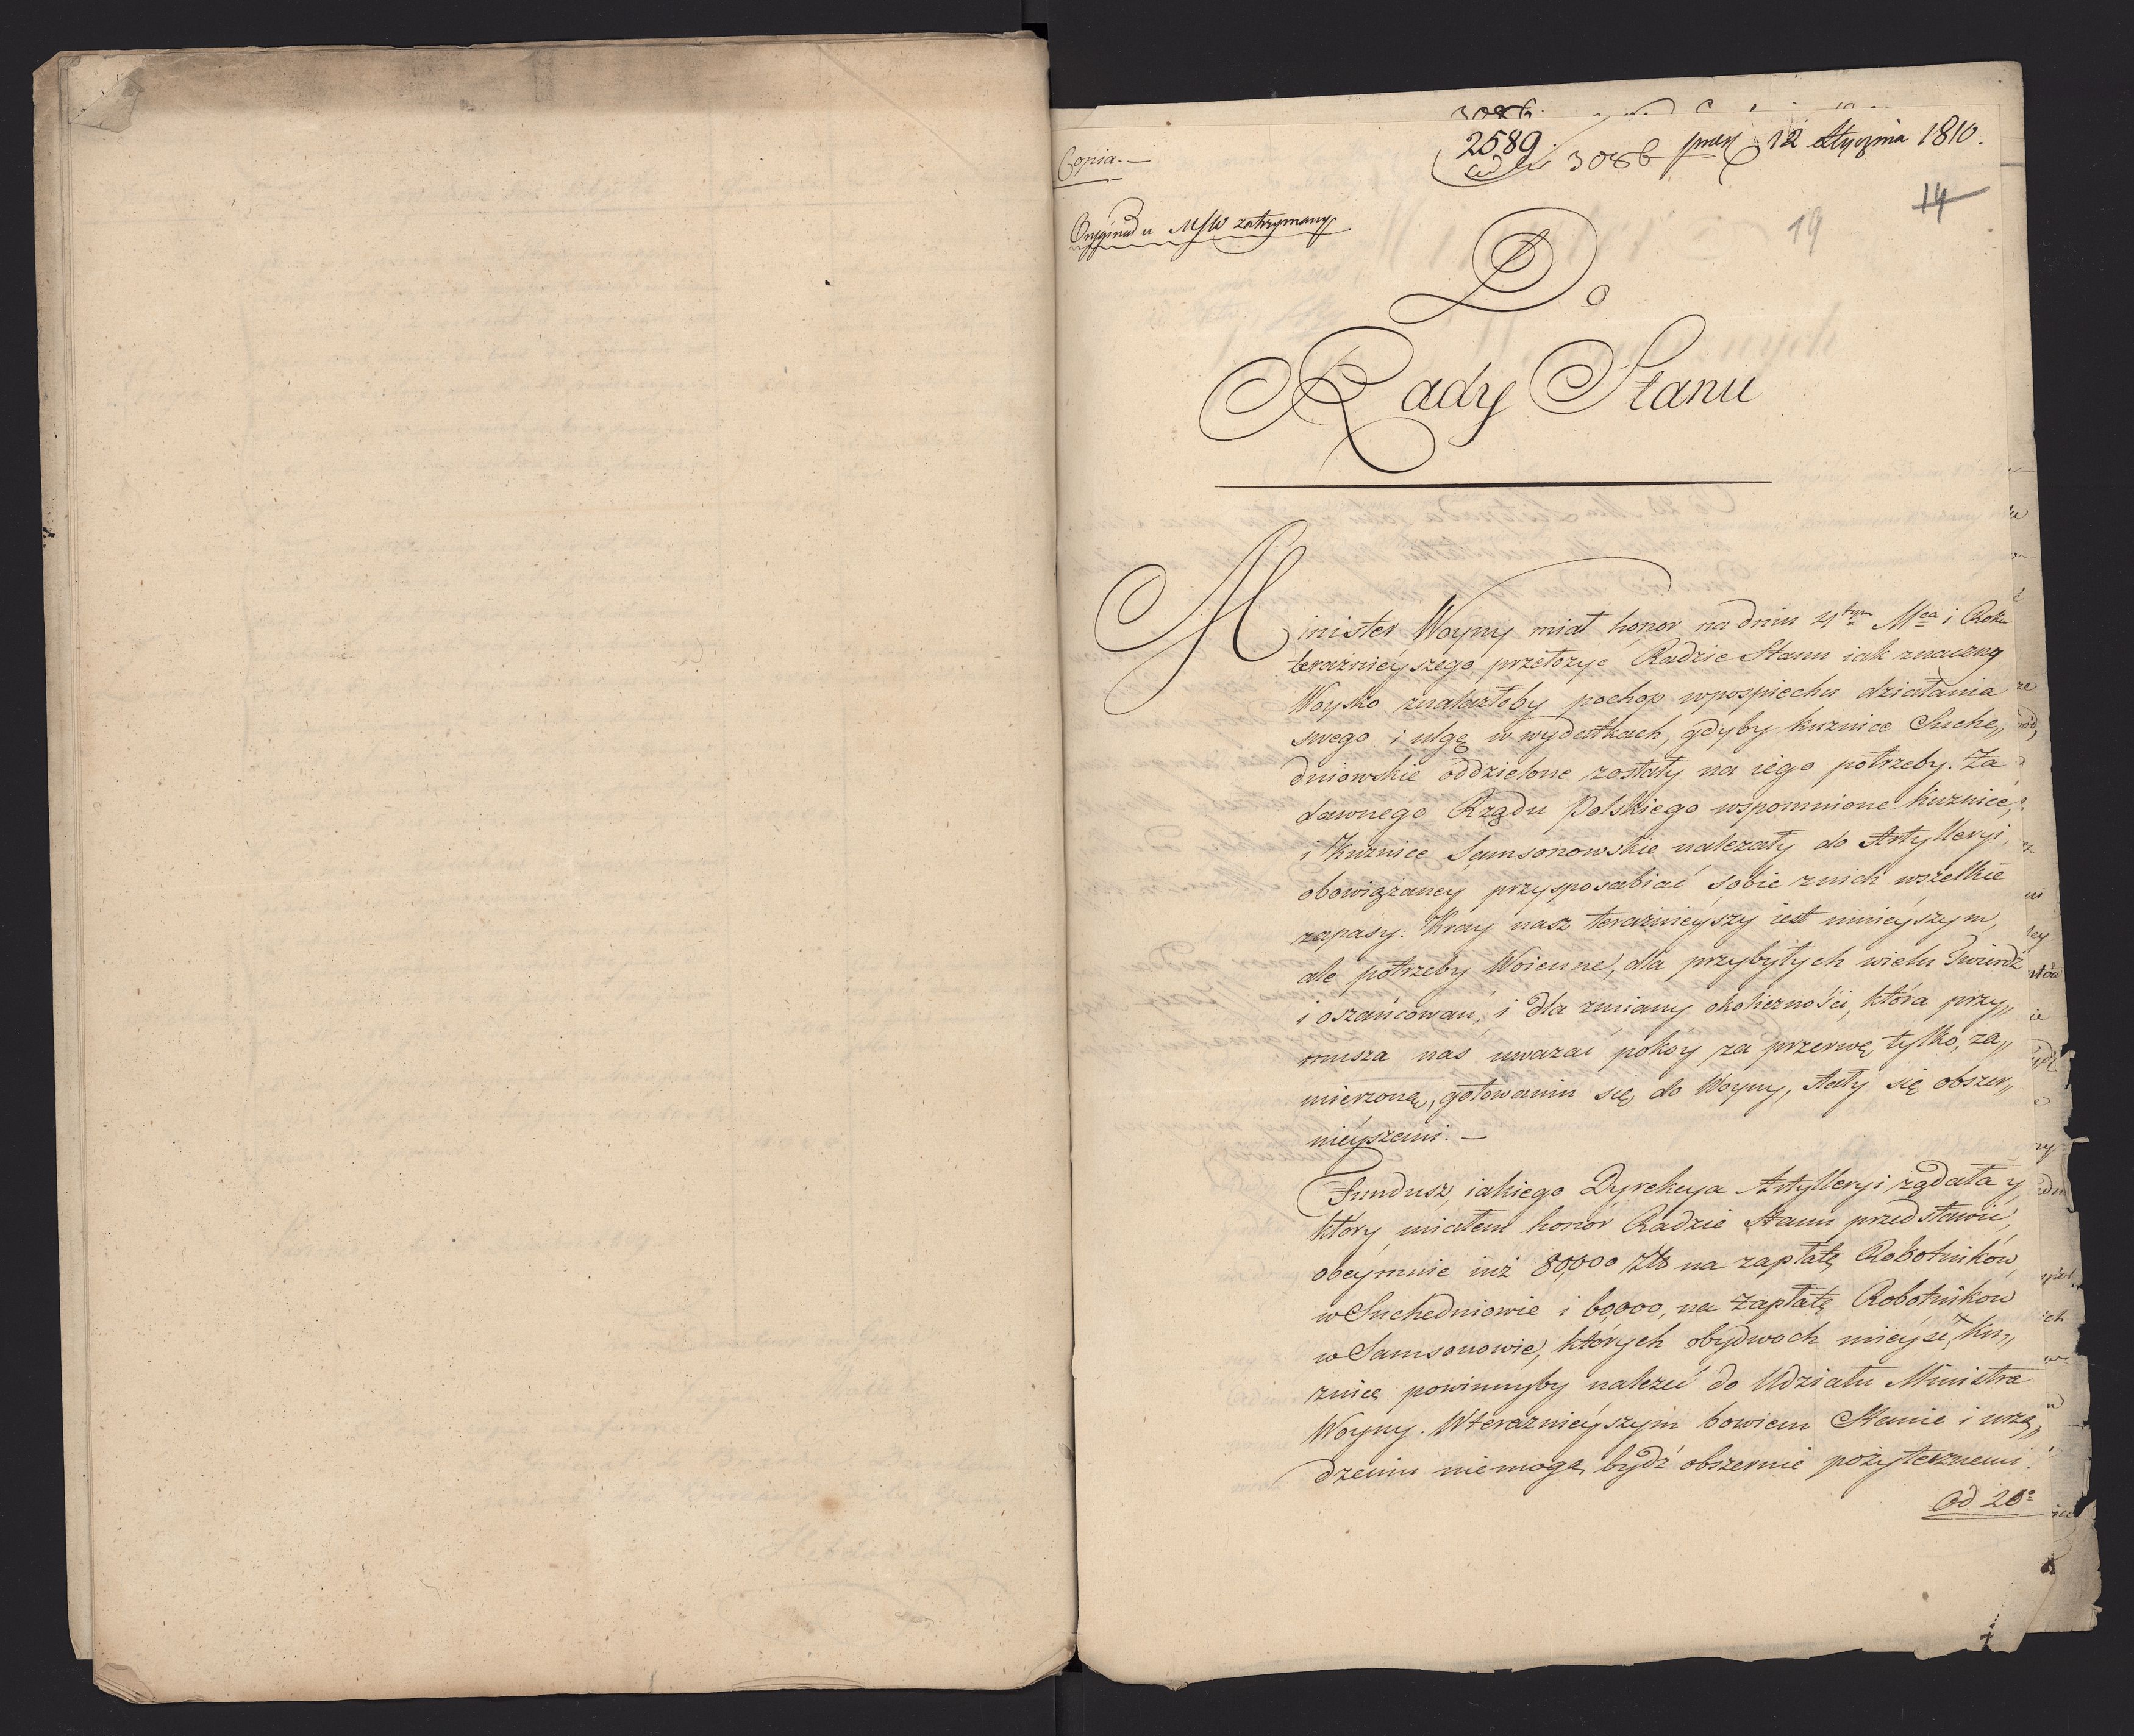 Copia.—
2589. pres 12 Stycznia 1810.
ad N 3086
Oryginał u MSW zatrzymany
14
19
Do
Rady Stanu
Minister Woyny miał honor na dniu 4tym Mca i Roku
teraźnieyszego przełożyć Radzie Stanu iak znaczny
Woysko znalazłoby pochop wpospiechu działania
swego i ulgę w wydatkach, gdyby kuznice Suche„
dniowskie oddzielone zostały na iego potrzeby. Za
dawnego Rządu Polskiego wspomnione Kuznice,
i Kuznice Samsonowskie należały do Artylleryi,
obowiązaney przysposabiać sobie znich wszelkie
zapasy: Kray nasz teraźnieyszy iest mnieyszym,
ale potrzeby Woienne, dla przybyłych wielu Twierdz
i oszańcowań, i dla zmiany okoliczności, która przy„
musza nas uważać pokóy za przerwę tylko, za„
mierzoną, gotowaniu się do Woyny, stały się obszer„
nieyszemi.—
Fundusz, iakiego Dyrekcya Artylleryi żądała y
który miałem honor Radzie Stanu przedstawić,
obeymuie iuż 80,000 Złt na zapłatę Robotników,
w Suchedniowie i 60,000, na Zapłatę Robotników
w Samsonowie, których obydwoch mieysc, Ku„
znice powinnyby należeć do Udziału Ministra
Woyny. Wteraznieyszym bowiem Stanie i urzą„
dzeniu niemogą bydź obszernie pożytecznemi.
Od 20o